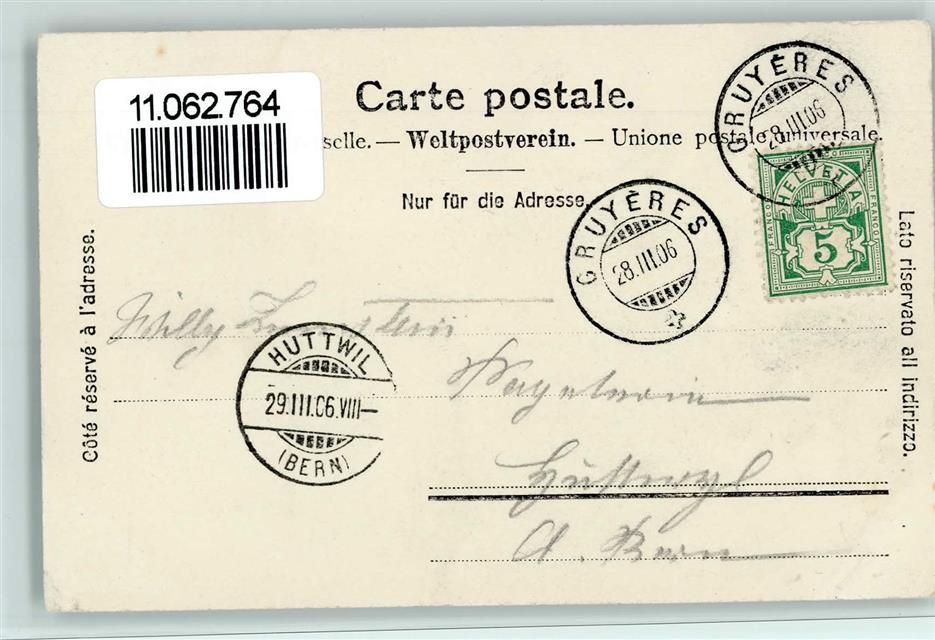 11.062.764
Carte postale.
selle. — Weltpostverein. — Unione postale universale.
Nur für die Adresse.
GRUYÈRES
28.III.06
HELVETIA
FRANCO
FRANCO
5
GRUYÈRES
28.III.06
Côté réservé à l'adresse.
Lato riservato all indirizzo.
Willy
HUTTWIL
29.III.06.VIII—
(BERN)
Huttwyl
Ct. Bern